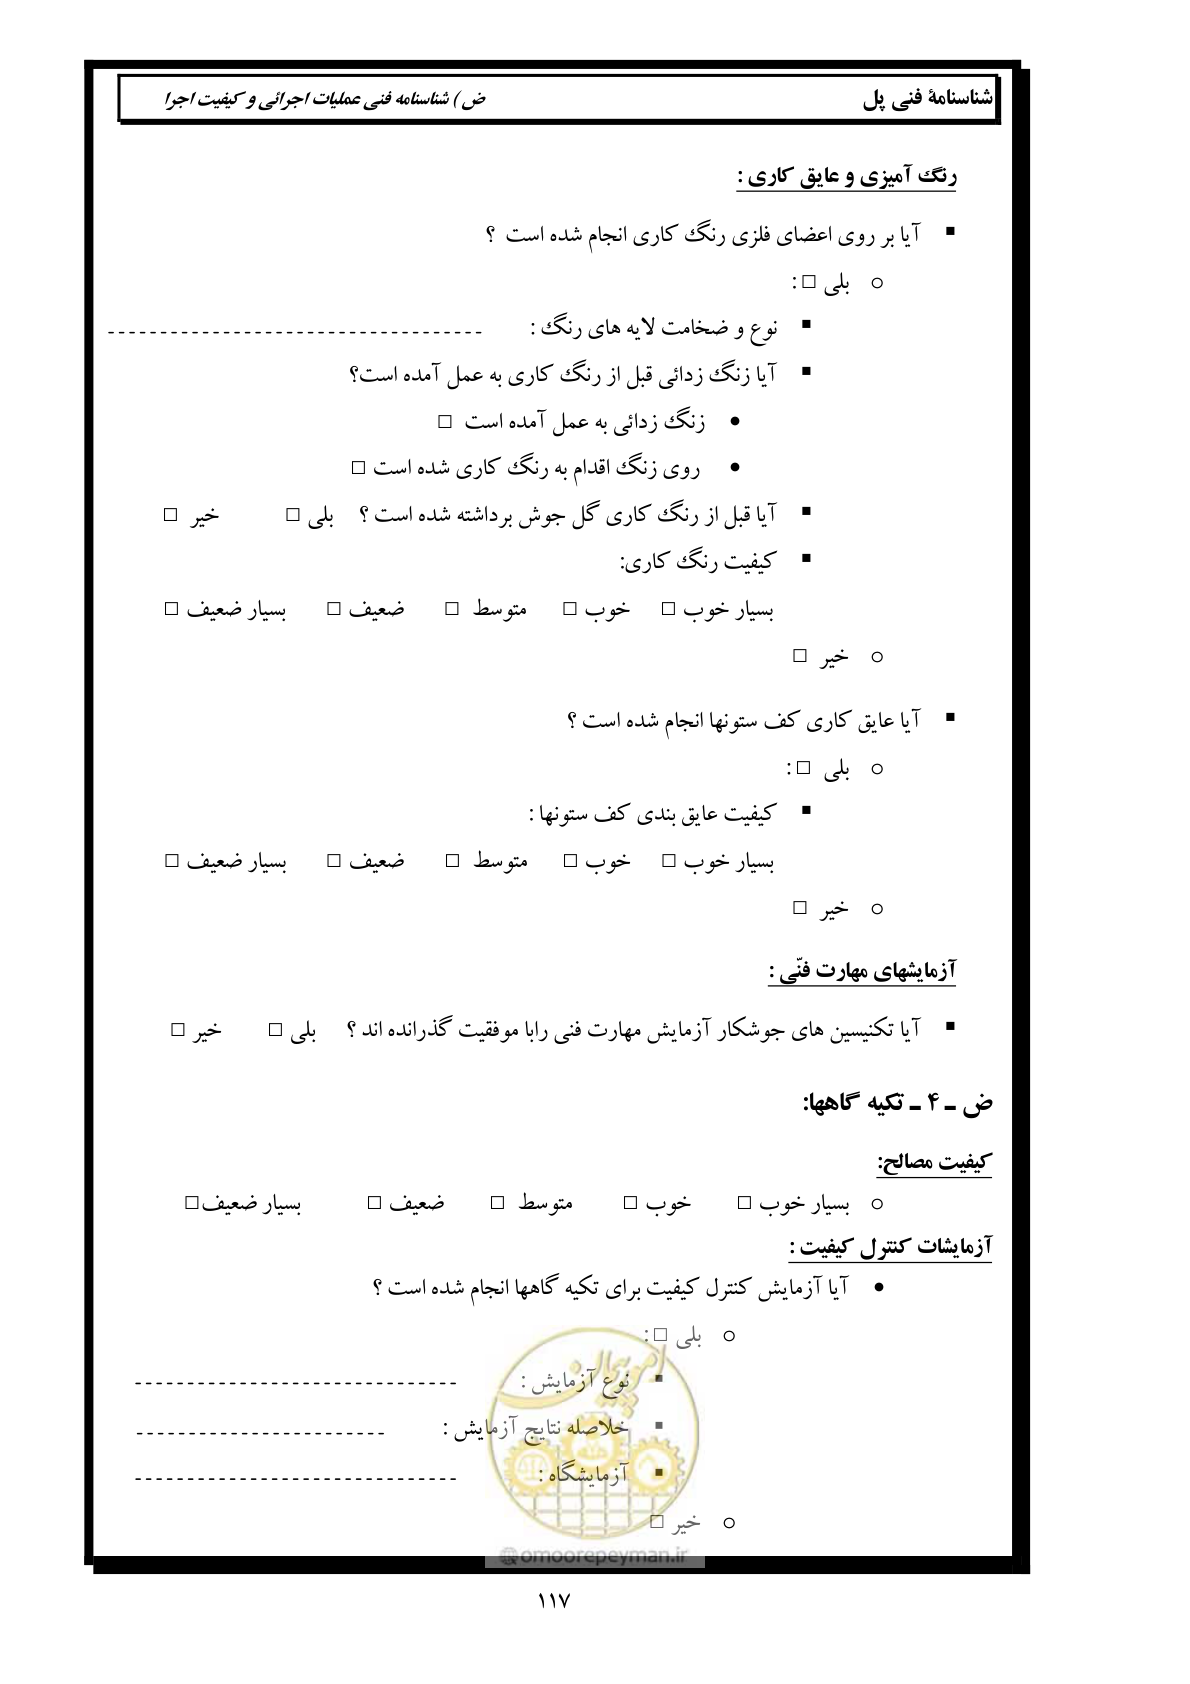 شناسنامهٔ فنی پل
ض ) شناسنامه فنی عملیات اجرائی و کیفیت اجرا
رنگ آمیزی و عایق کاری :
▪ آیا بر روی اعضای فلزی رنگ کاری انجام شده است ؟
○ بلی □ :
▪ نوع و ضخامت لایه های رنگ : ------------------------------------
▪ آیا زنگ زدائی قبل از رنگ کاری به عمل آمده است؟
• زنگ زدائی به عمل آمده است □
• روی زنگ اقدام به رنگ کاری شده است □
▪ آیا قبل از رنگ کاری گل جوش برداشته شده است ؟ بلی □ خیر □
▪ کیفیت رنگ کاری:
بسیار خوب □ خوب □ متوسط □ ضعیف □ بسیار ضعیف □
○ خیر □
▪ آیا عایق کاری کف ستونها انجام شده است ؟
○ بلی □ :
▪ کیفیت عایق بندی کف ستونها :
بسیار خوب □ خوب □ متوسط □ ضعیف □ بسیار ضعیف □
○ خیر □
آزمایشهای مهارت فنّی :
▪ آیا تکنیسین های جوشکار آزمایش مهارت فنی رابا موفقیت گذرانده اند ؟ بلی □ خیر □
ض ـ ۴ ـ تکیه گاهها:
کیفیت مصالح:
○ بسیار خوب □ خوب □ متوسط □ ضعیف □ بسیار ضعیف□
آزمایشات کنترل کیفیت :
• آیا آزمایش کنترل کیفیت برای تکیه گاهها انجام شده است ؟
○ بلی □ :
▪ نوع آزمایش : -------------------------------
▪ خلاصه نتایج آزمایش : ------------------------
▪ آزمایشگاه : -------------------------------
○ خیر □
امور پیمان
@omoorepeyman.ir
۱۱۷